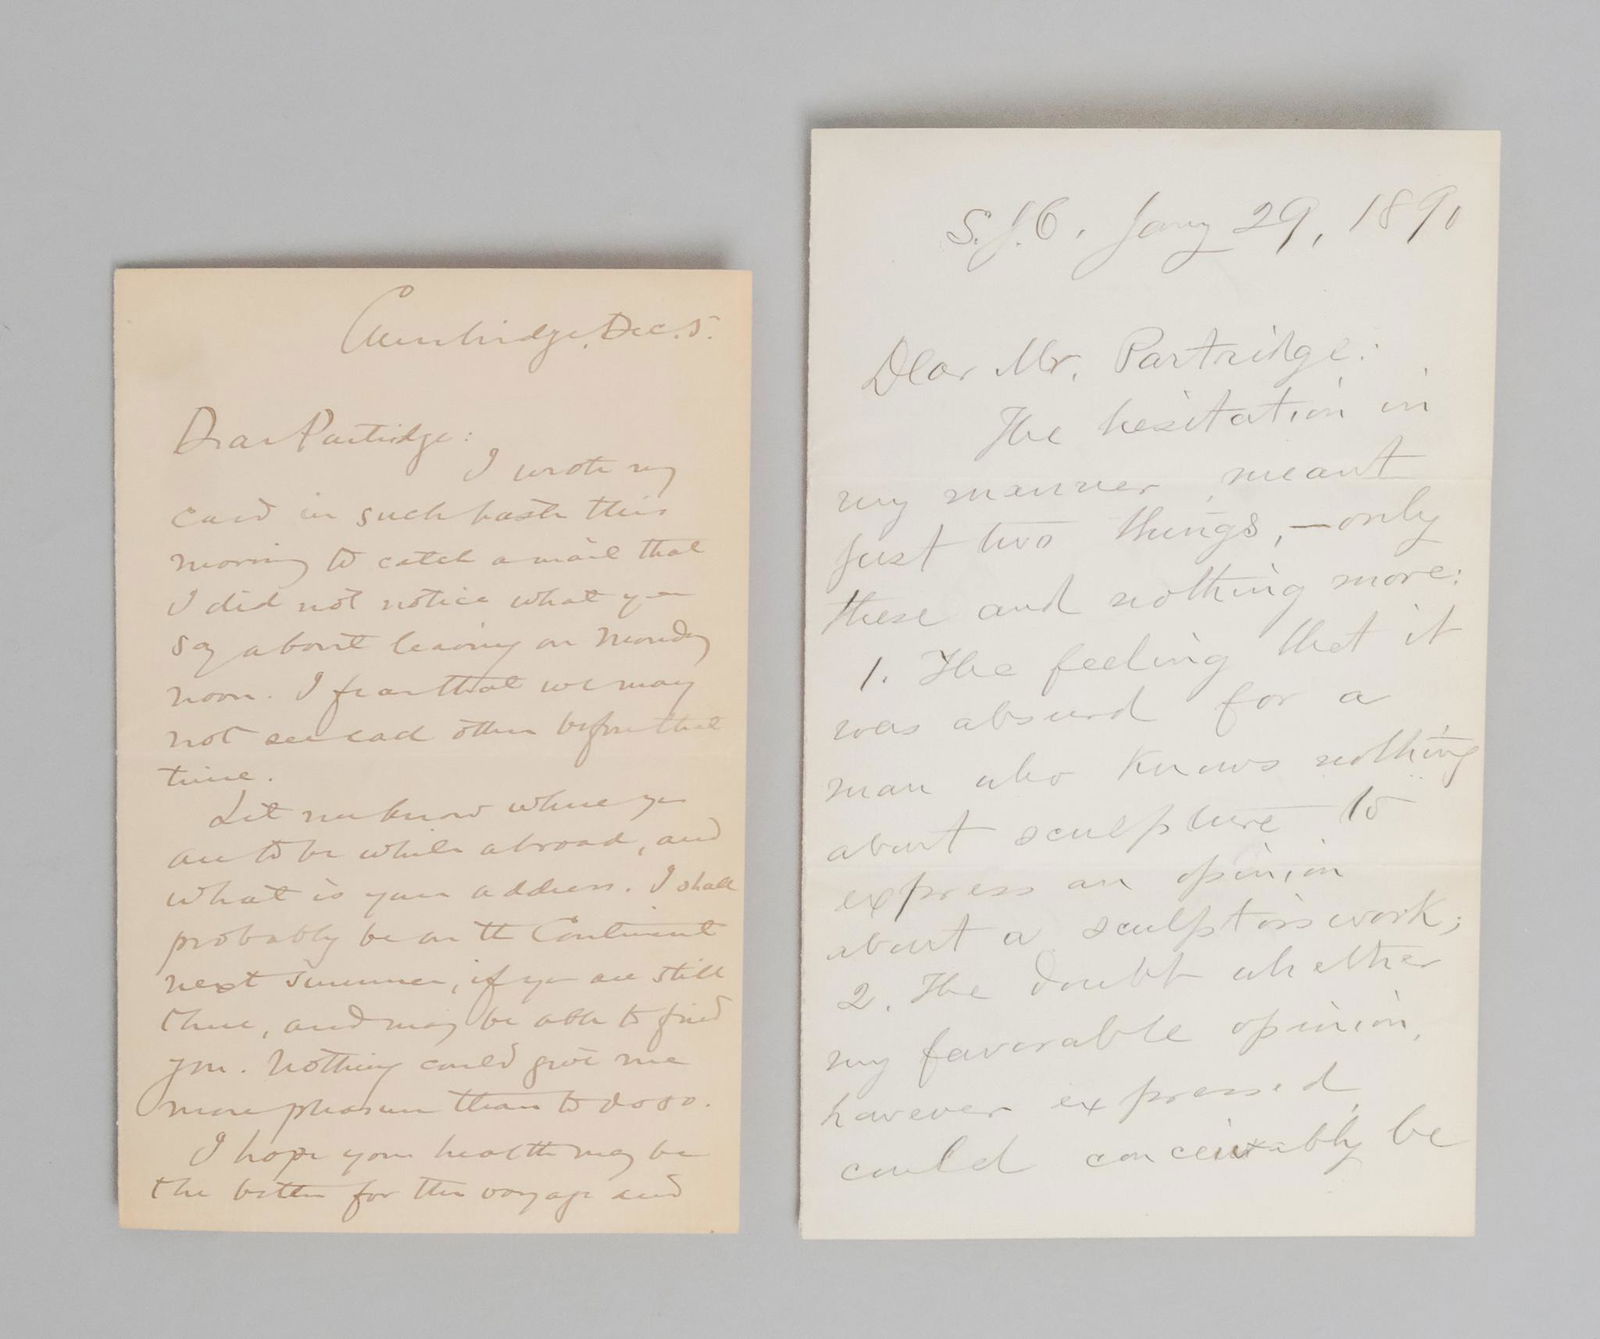 Cambridge, Dec. 5.
Dear Partridge:
I wrote my
card in such haste this
morning to catch a mail that
I did not notice what you
say about leaving on Monday
noon. I fear that we may
not see each other before that
time.
Let me know where you
are to be while abroad, and
what is your address. I shall
probably be on the Continent
next summer, if you are still
there, and may be able to find
you. Nothing could give me
more pleasure than to do so.
I hope your health may be
the better for the voyage and
S.J.C. Jany 29, 1890
Dear Mr. Partridge:
The hesitation in
my manner, meant
just two things,—only
these and nothing more:
1. The feeling that it
was absurd for a
man who knows nothing
about sculpture to
express an opinion
about a sculptor's work;
2. The doubt whether
my favorable opinion,
however expressed,
could conceivably be